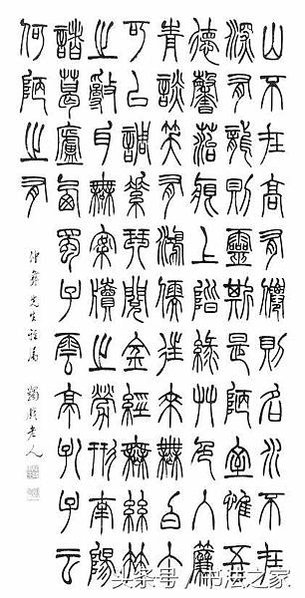 山不在高有僊則名水不在
深有龍則靈斯是陋室惟吾
德馨苔痕上階綠艸色入簾
青談笑有鴻儒往來無白丁
可以調素琴閱金經無絲竹
之亂耳無案牘之勞形南陽
諸葛廬西蜀子雲亭孔子云
何陋之有
先生雅屬 蠲戲老人
头条号／书法之家